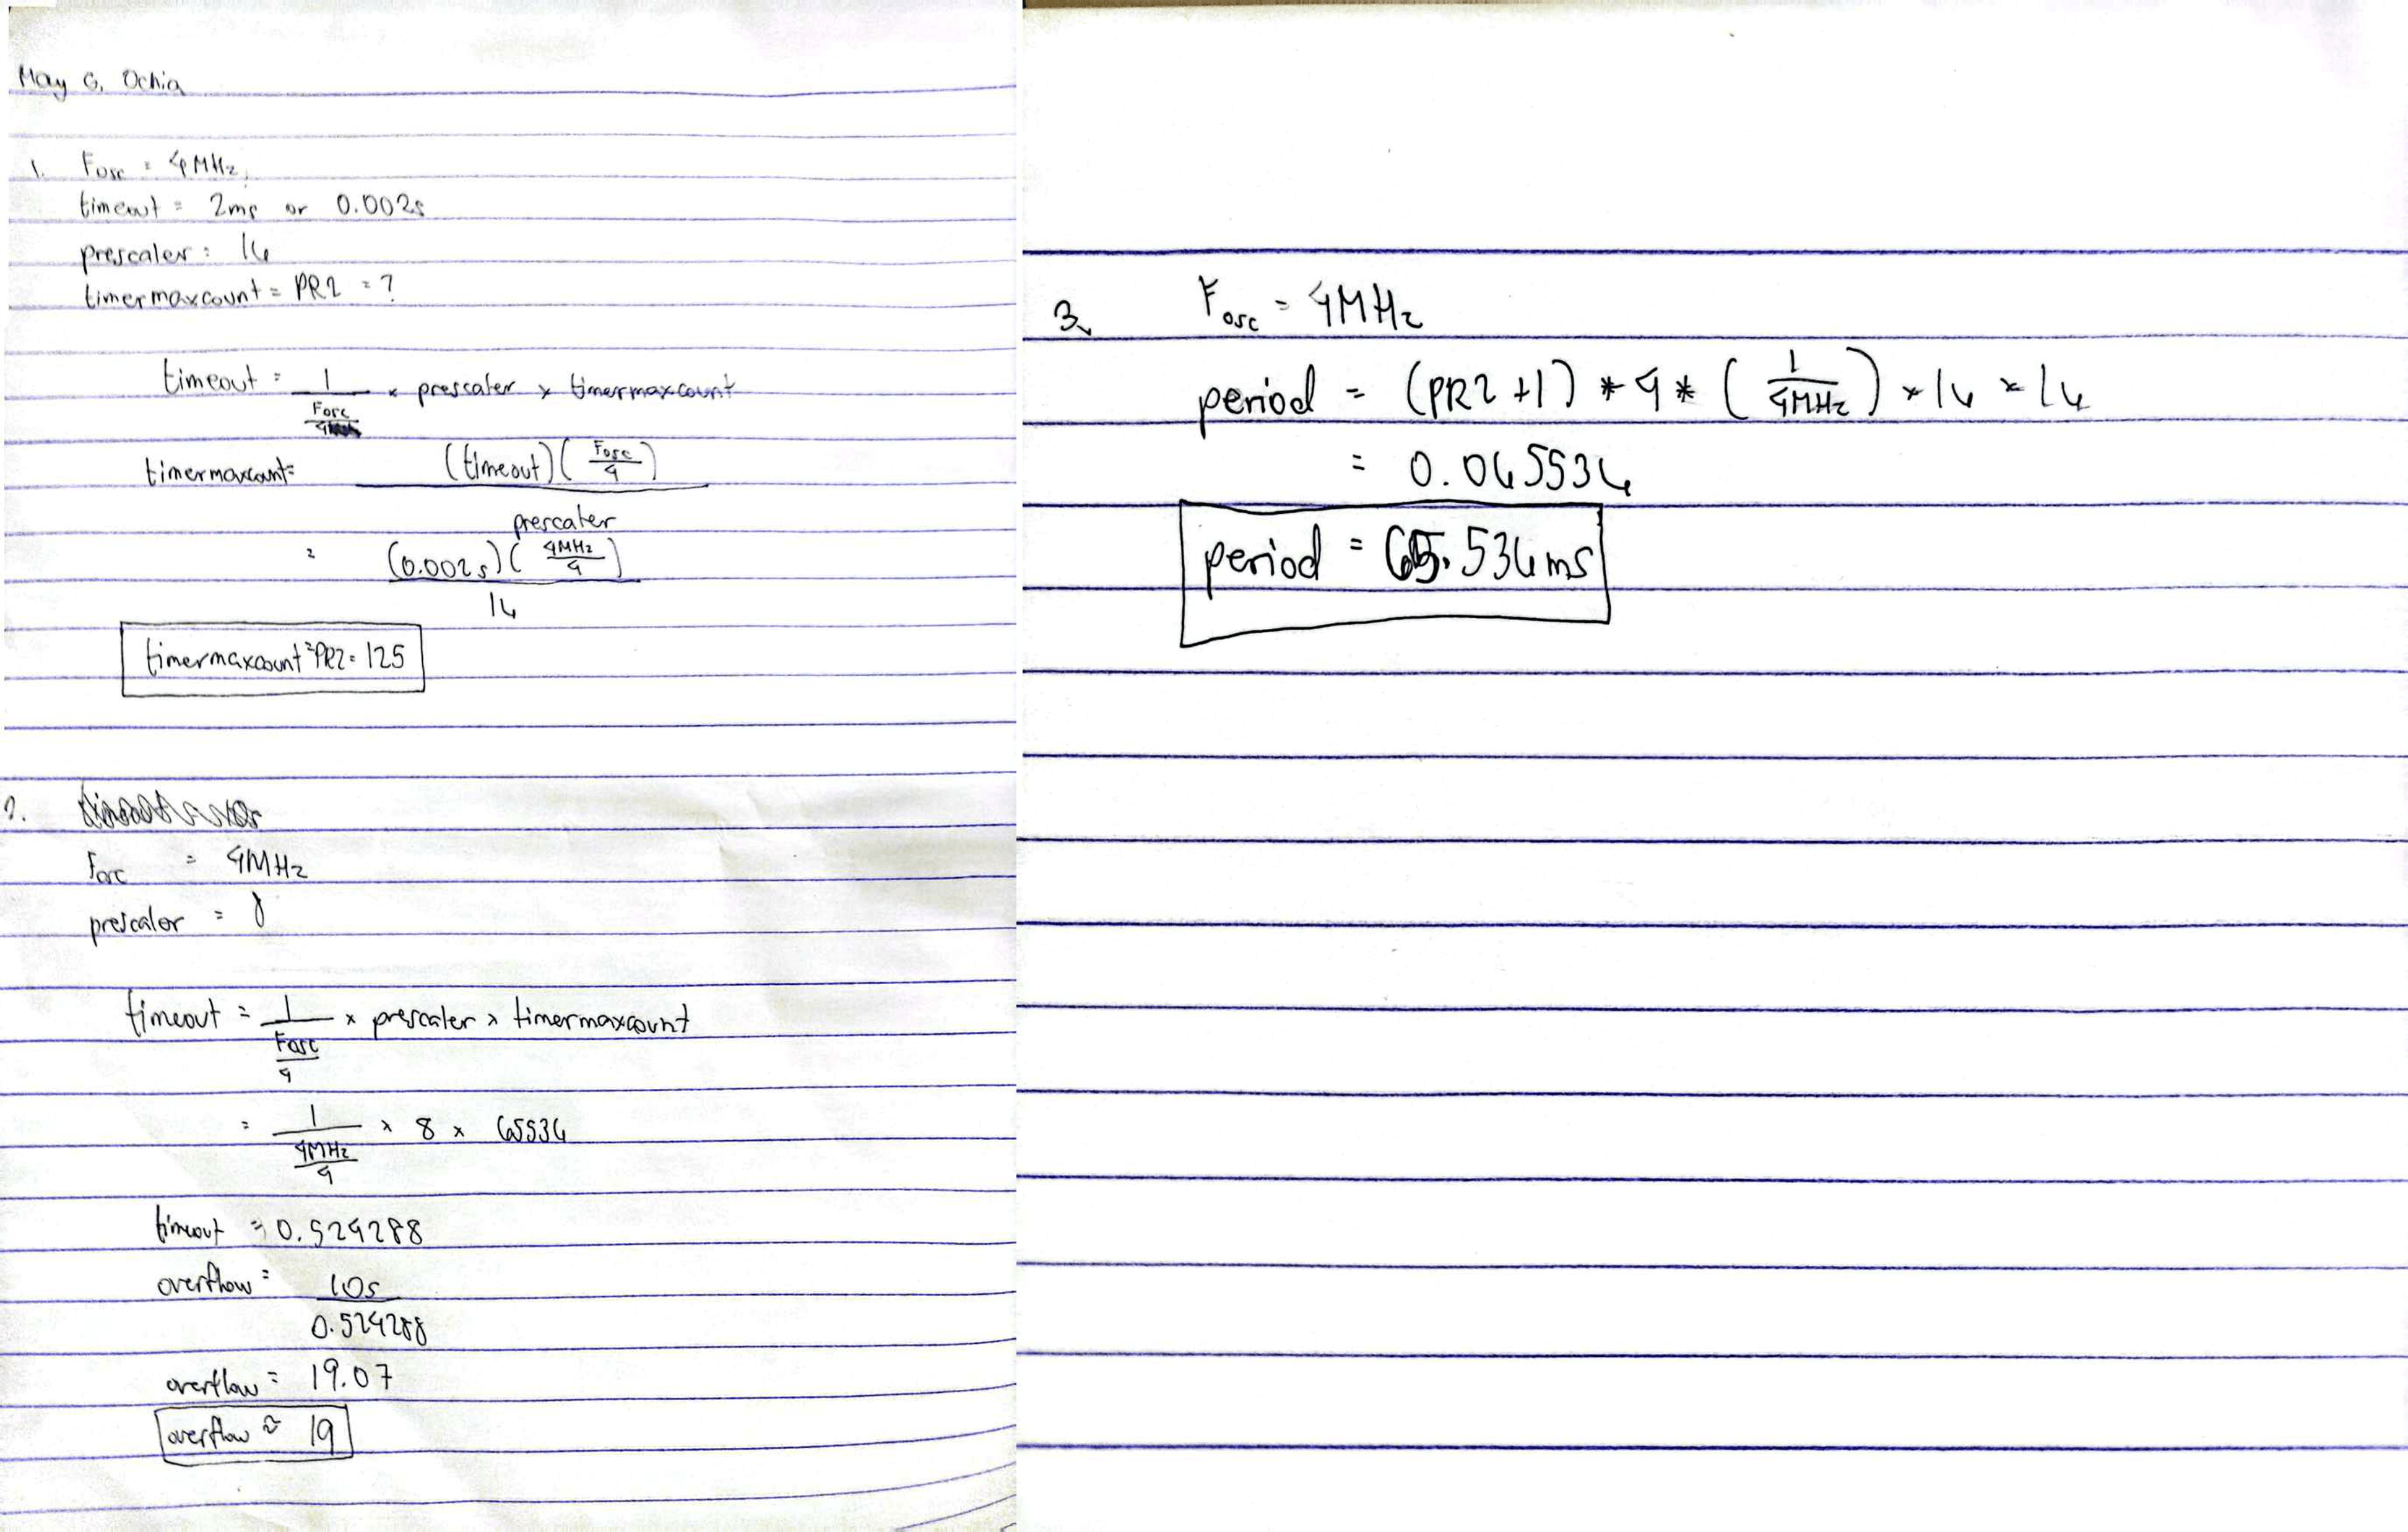 May G. Ochia
1. Fosc = 4MHz,
timeout = 2ms or 0.002s
prescaler = 16
timermaxcount = PR2 = ?
timeout = 1 / (Fosc / 4) × prescaler × timermaxcount
timermaxcount = (timeout)(Fosc / 4) / prescaler
= (0.002s)(4MHz / 4) / 16
timermaxcount = PR2 = 125
2.
Fosc = 4MHz
prescaler = 8
timeout = 1 / (Fosc / 4) × prescaler × timermaxcount
= 1 / (4MHz / 4) × 8 × 65536
timeout = 0.524288
overflow = 10s / 0.524288
overflow = 19.07
overflow ≈ 19
3. Fosc = 4MHz
period = (PR2 + 1) * 4 * (1 / 4MHz) * 16 * 16
= 0.065536
period = 65.536ms